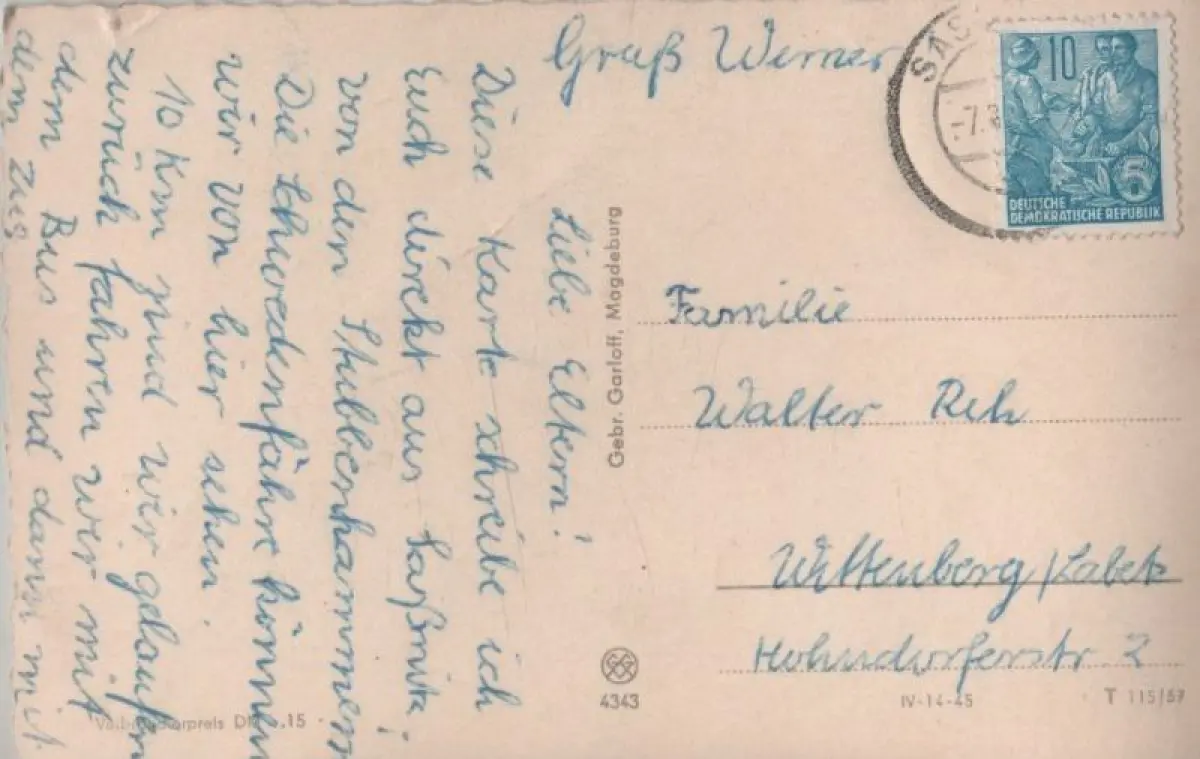 Liebe Eltern!
Diese Karte schreibe ich
Euch direkt aus Saßnitz!
von den Stubbenkammern
Die Schwedenfähre können
wir von hier sehen.
10 Km sind wir gelaufen
zurück fahren wir mit
dem Bus und dann mit
dem Zug
Gruß Werner
SAS
-7.8
10
5
DEUTSCHE
DEMOKRATISCHE REPUBLIK
Familie
Walter Reh
Wittenberg/Labetz
Hohndorferstr 2
Gebr. Garloff, Magdeburg
4343
IV-14-45
T 115/57
Verbraucherpreis DM 0.15